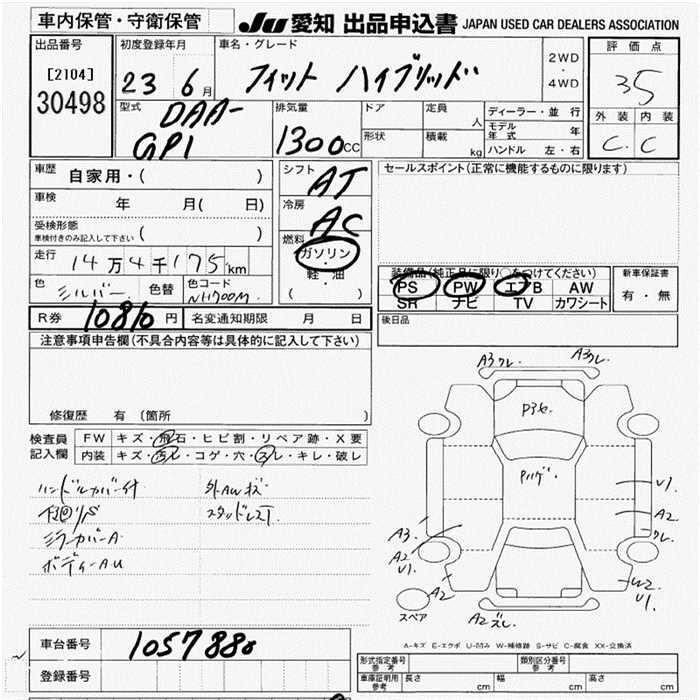 車内保管・守衛保管
JU 愛知 出品申込書 JAPAN USED CAR DEALERS ASSOCIATION
出品番号
[2104]
30498
初度登録年月
23 6月
車名・グレード
フィット ハイブリッド
2WD
・
4WD
評価点
3.5
外装 内装
C. C
型式
DAA-
GP1
排気量
1300cc
ドア
定員 人
形状
積載 kg
ディーラー・並行
モデル年式 年
ハンドル 左・右
車歴 自家用・( )
車検 年 月( 日)
受検形態
車検付きのみ記入して下さい ( )
走行 14万4千175km
色 シルバー 色替 色コード NH700M
シフト AT
冷房 AC
燃料
ガソリン
・
軽・油
( )
セールスポイント(正常に機能するものに限ります)
装備品(純正品に限り○をつけてください)
PS PW エアB AW
SR ナビ TV カワシート
新車保証書
有・無
R券 10810円 名変通知期限 月 日
後日品
注意事項申告欄(不具合内容等は具体的に記入して下さい)
修復歴 有 〔箇所
検査員記入欄
FW キズ・飛石・ヒビ割・リペア跡・X要
内装 キズ・汚レ・コゲ・穴・スレ・キレ・破レ
ハンドルカバー付
外AWキズ
スタッドレス
ミラーカバーA
ボディーAU
A3クレ
A3クレ
P3セ
Pハゲ
U1
A2
クレ
A3
A2
U1
A2
W2
U1
A2ズレ
スペア
A-キズ E-エクボ U-凹み W-補修跡 S-サビ C-腐食 XX-交換済
車台番号 1057880
登録番号
形式指定番号 参考
類別区分番号 参考
車庫証明用 参考 長さ cm 幅 cm 高さ cm